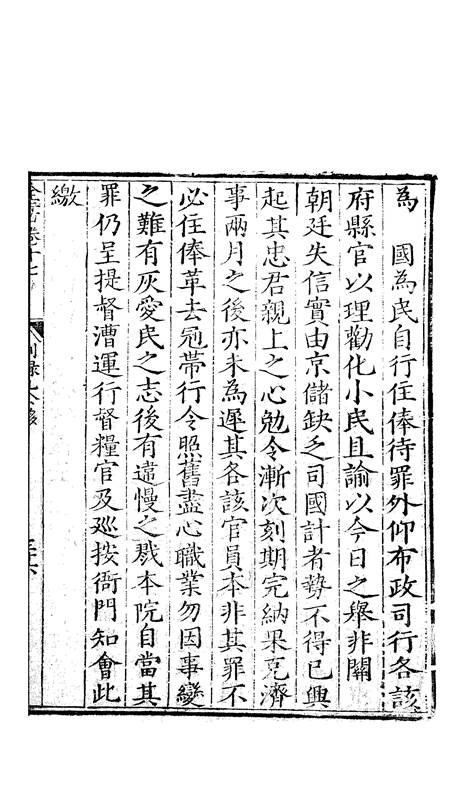 為　國為民自行住俸待罪外仰布政司行各該
府縣官以理勸化小民且諭以今日之舉非關
朝廷失信實由京儲缺乏司國計者勢不得已興
起其忠君親上之心勉令漸次刻期完納果克濟
事兩月之後亦未為遲其各該官員本非其罪不
必住俸革去冠帶行令照舊盡心職業勿因事變
之難有灰愛民之志後有違慢之戮本院自當其
罪仍呈提督漕運行督糧官及廵按衙門知會此
繳
全書卷十七